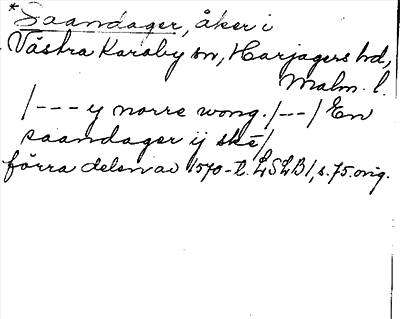 *Saandager, åker i
Västra Karaby sn, Harjagers hd,
Malm. l.
/--- y norre wong. /--/ En
saandager ij skē/
förra delen av 1570-t. LSLB1, s. 75. orig.